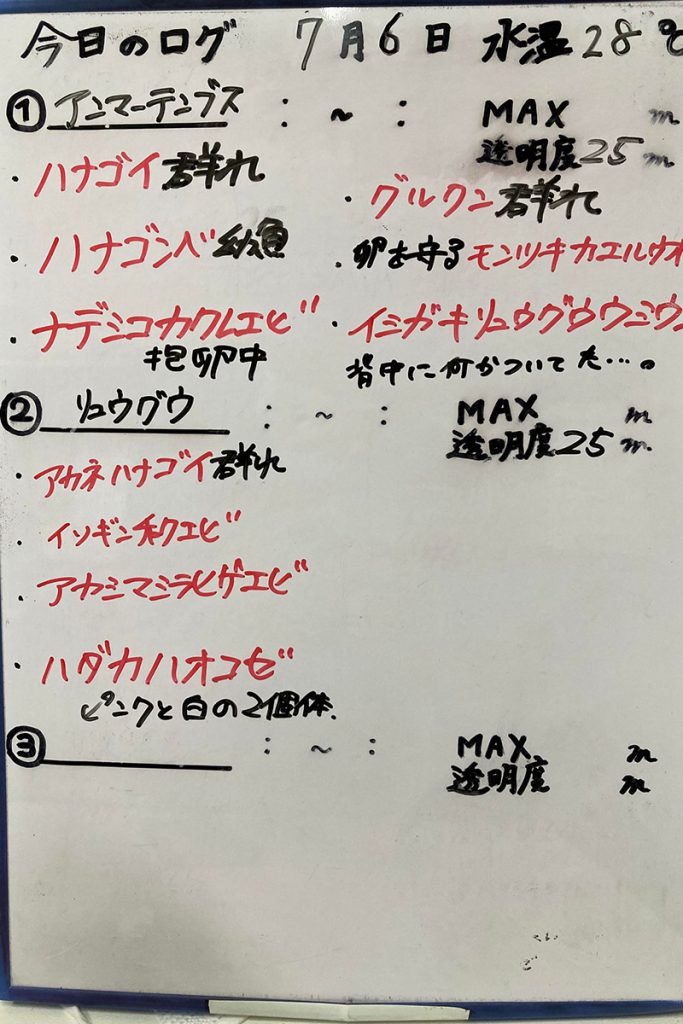 今日のログ 7月6日 水温28℃
① アンマーテンブス : ~ : MAX m
透明度25m
・ハナゴイ群れ
・グルクン群れ
・ハナゴンベ幼魚
・卵を守るモンツキカエルウオ
・ナデシコカクレエビ
抱卵中
・イシガキリュウグウウミウ
背中に何かついてた…。
② リュウグウ : ~ : MAX m
透明度25m
・アカネハナゴイ群れ
・イソギンチャクエビ
・アカシマシラヒゲエビ
・ハダカハオコゼ
ピンクと白の2個体.
③ : ~ : MAX m
透明度 m